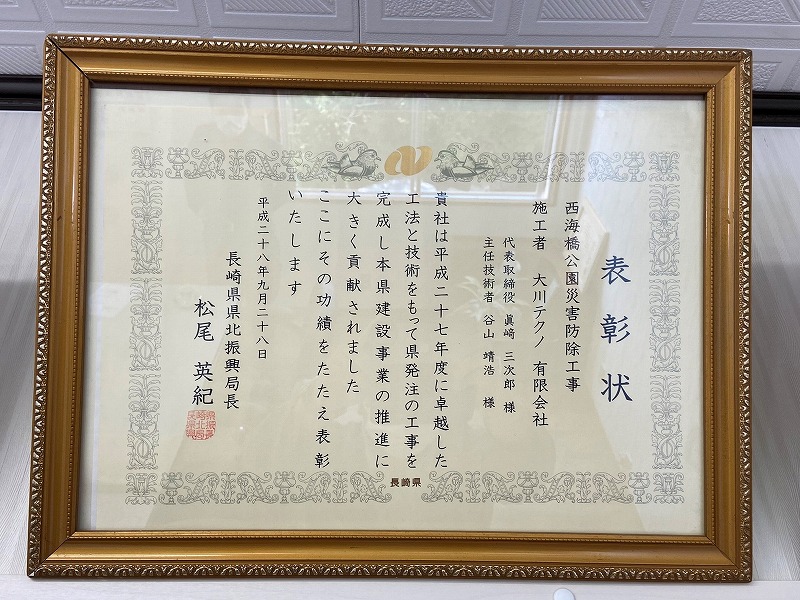 表彰状
西海橋公園災害防除工事
施工者 大川テクノ 有限会社
代表取締役 眞崎 三次郎 様
主任技術者 谷山 靖浩 様
貴社は平成二十七年度に卓越した
工法と技術をもって県発注の工事を
完成し本県建設事業の推進に
大きく貢献されました
ここにその功績をたたえ表彰
いたします
平成二十八年九月二十八日
長崎県県北振興局長
松尾 英紀
長崎県